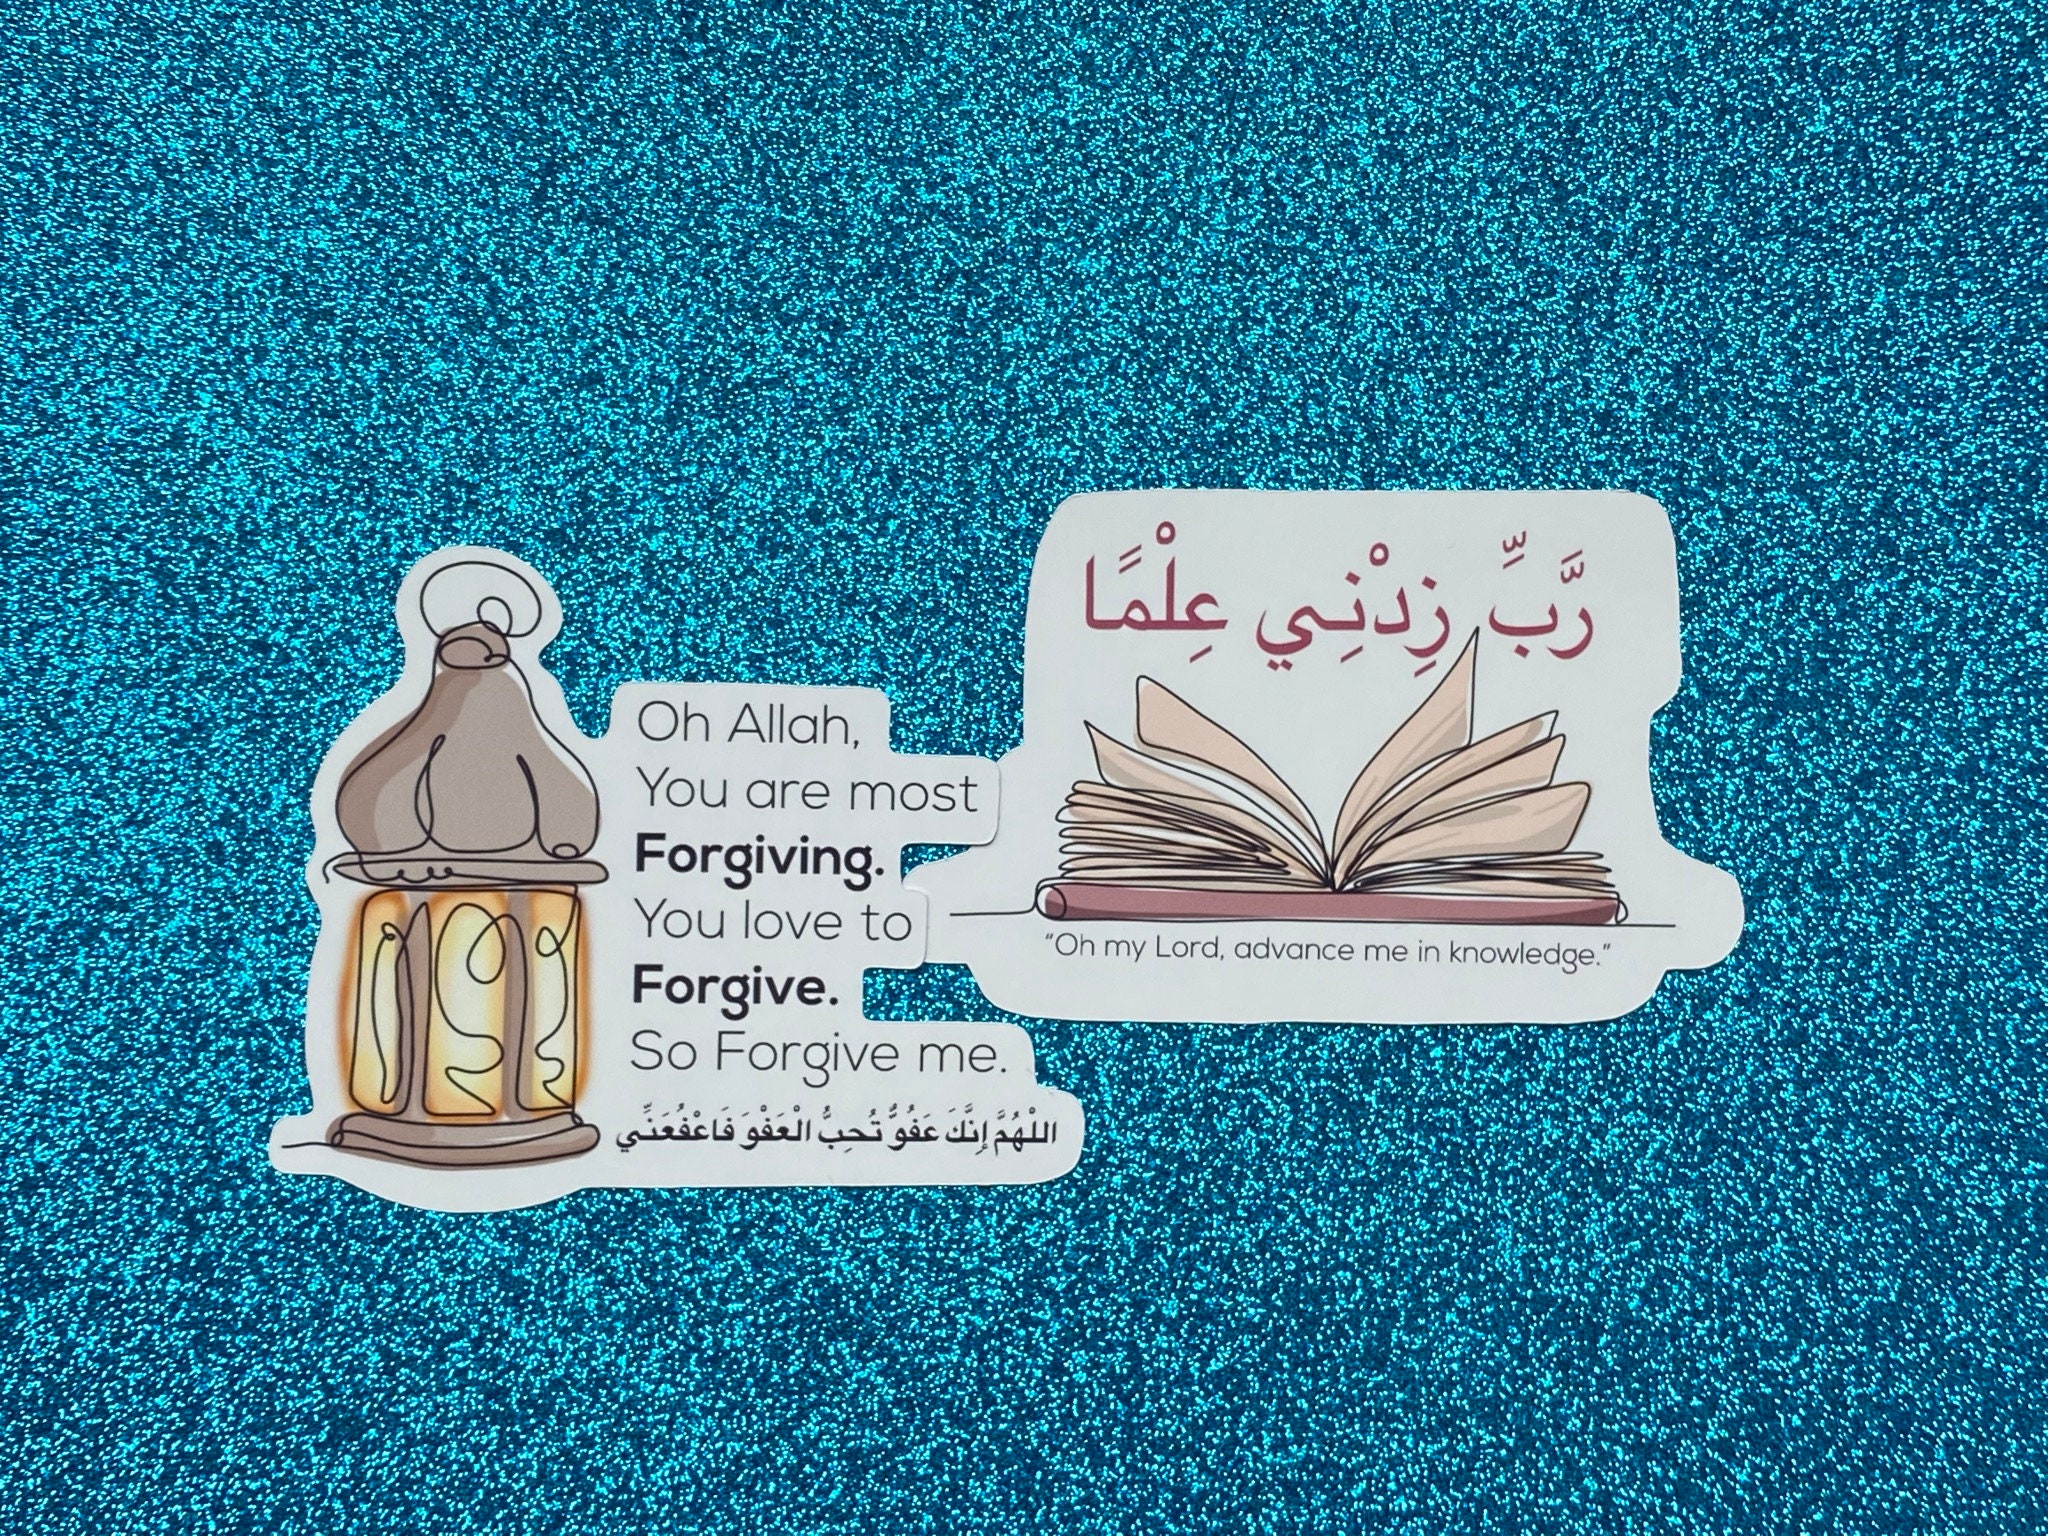 Oh Allah,
You are most
Forgiving.
You love to
Forgive.
So Forgive me.
اللْهُمَّ إِنَّكَ عَفُوٌّ تُحِبُّ الْعَفْوَ فَاعْفُعَنِّي
رَّبِّ زِدْنِي عِلْمًا
"Oh my Lord, advance me in knowledge."